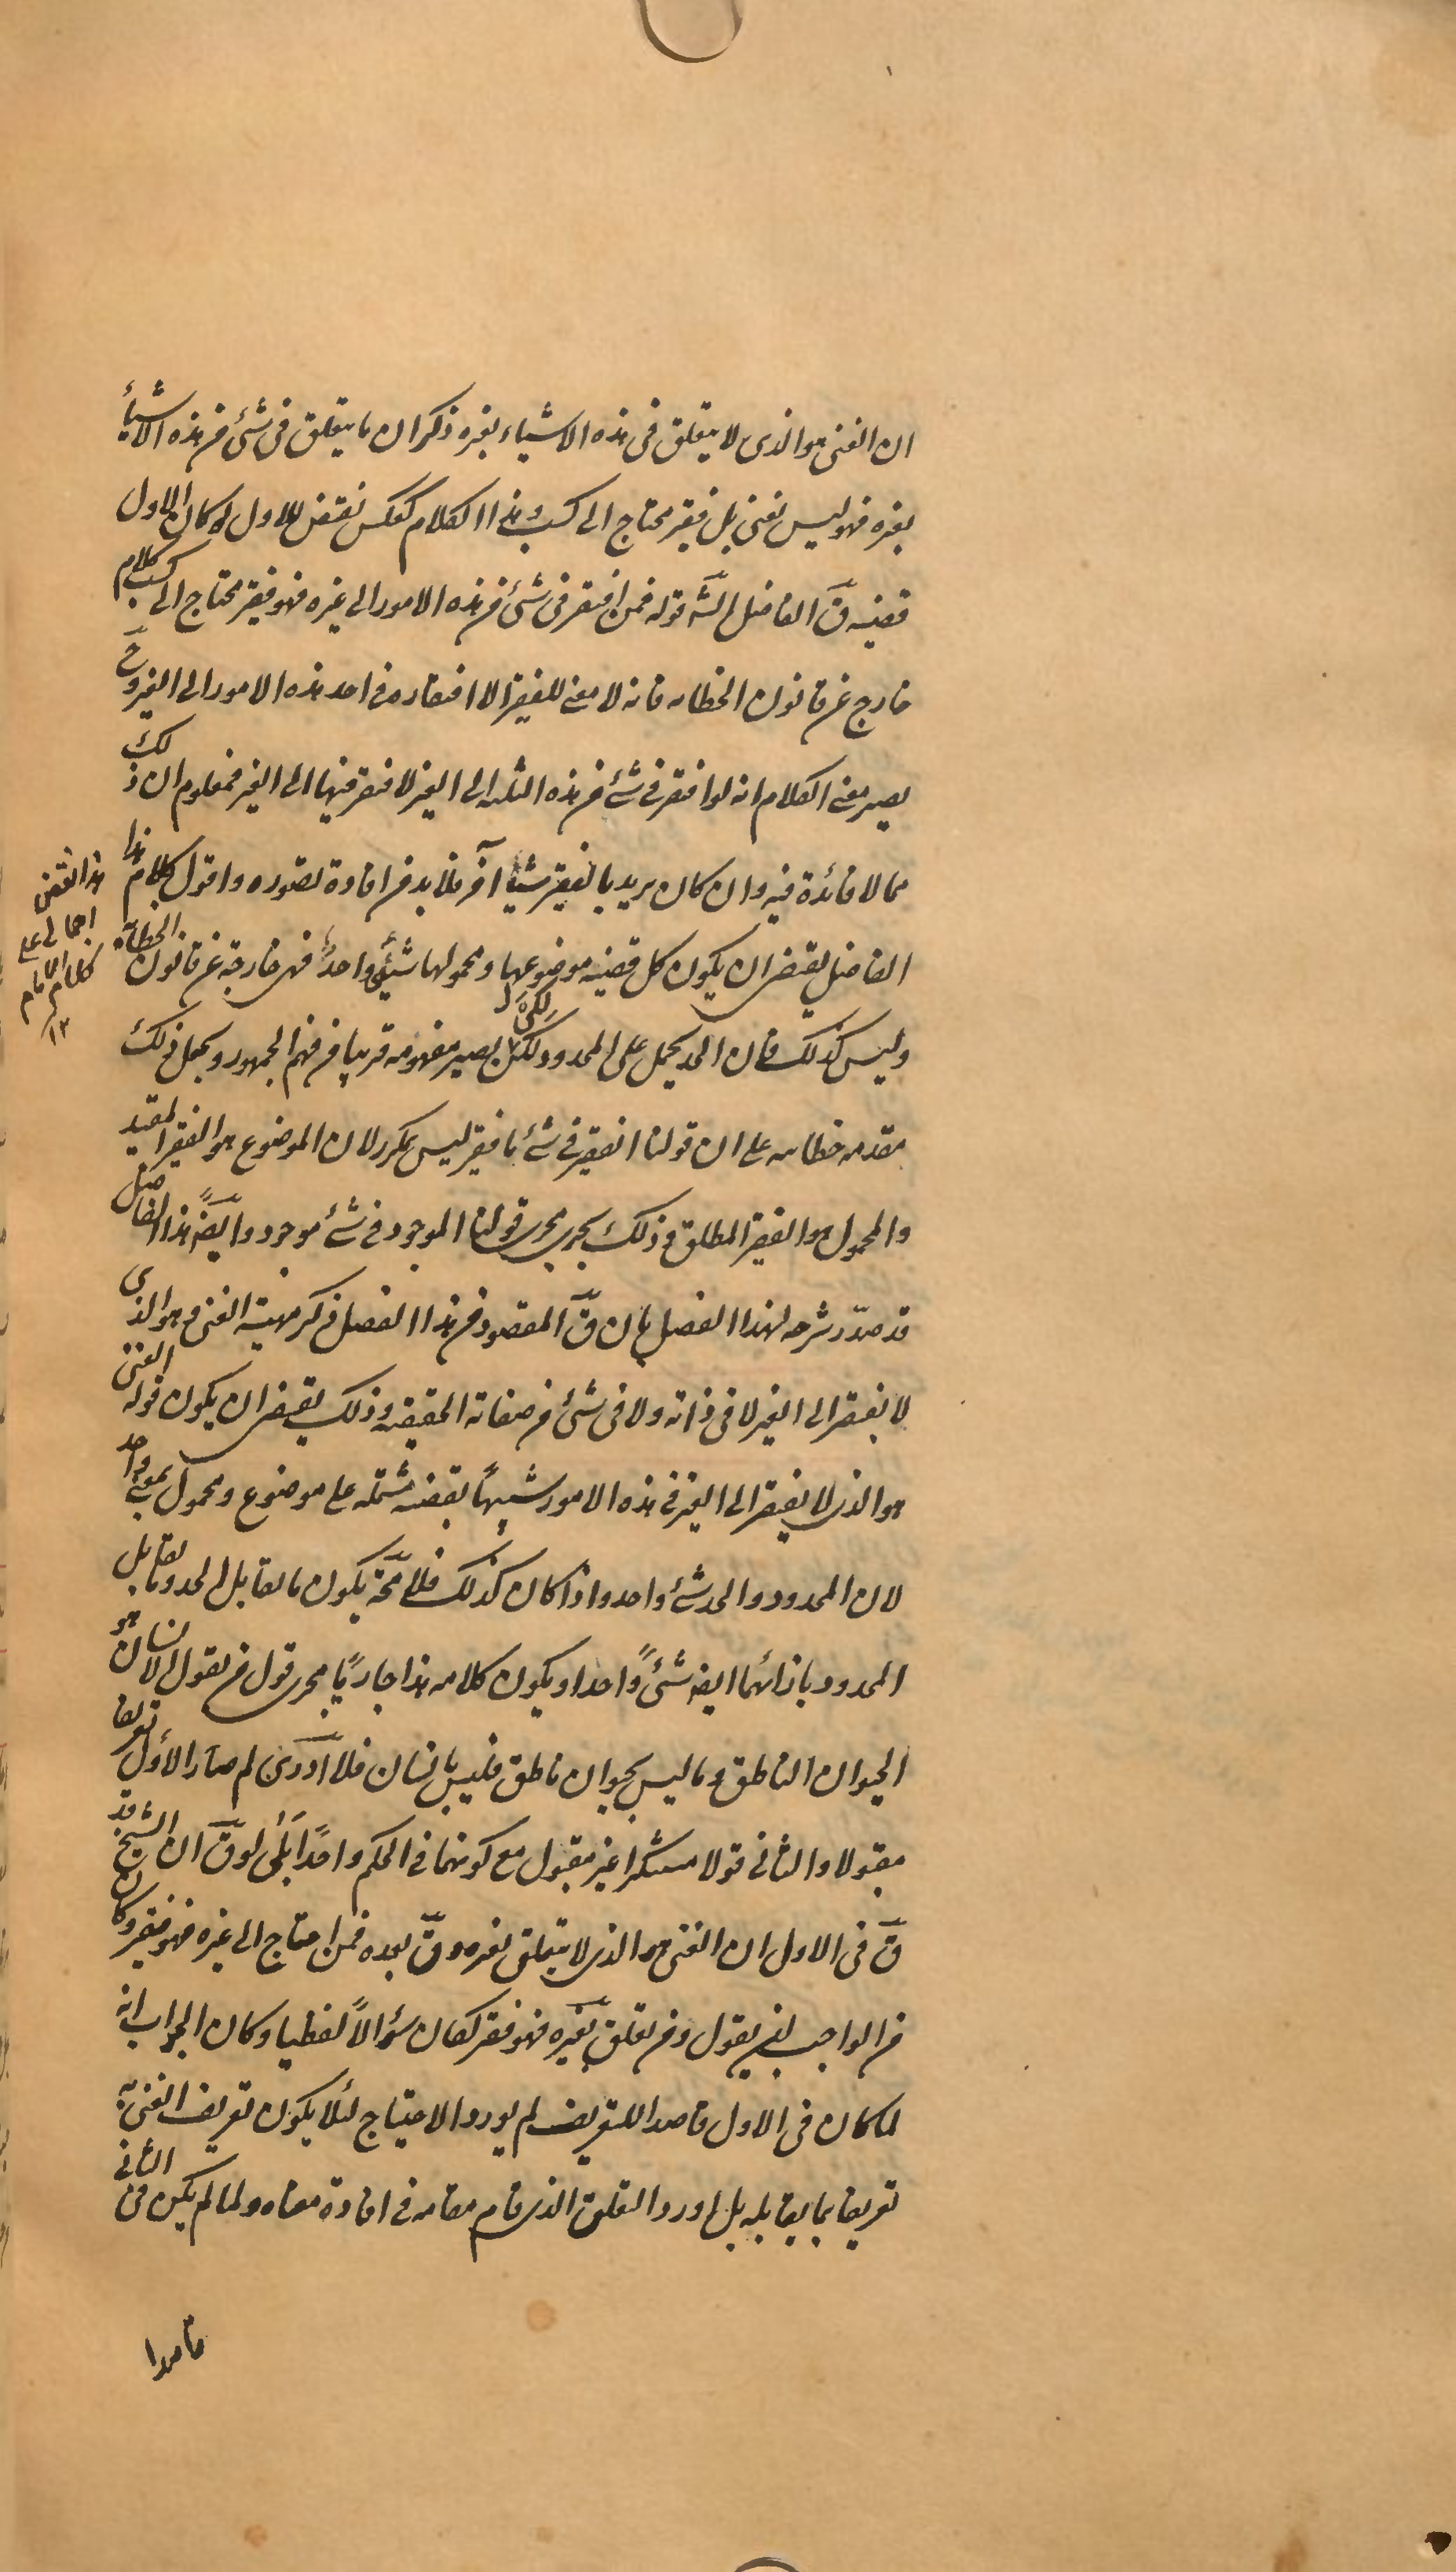 ان الغنى هو الذى لا يتعلق فى هذه الاشياء بغيره ذكر ان ما يتعلق فى شئ من هذه الاشياء
بغيره فهو ليس بغنى بل فقير محتاج الى كسب و هذا الكلام كعكس نقيض للاول لو كان الاول
قضيه قَ الفاضل الشَه قوله فمن افتقر فى شئ من هذه الامور الى غيره فهو فقير محتاج الى كسب كلام
خارج عن قانون الخطابه فانه لا معنى للفقير الا افتقاره فى احد هذه الامور الى الغير وحَ
يصير معنى الكلام انه لو افتقر فى شئ من هذه الثلثه الى الغير لافتقر فيها الى الغير فمعلوم ان ذلك
مما لا فائدة فيه وان كان يريد بالفقير شيئا آخر فلا بد من افادة تصوره واقول كلام هذا
الفاضل يقتضى ان يكون كل قضيه موضوعها و محمولها شئ واحد فهى خارجة عن قانون الخطابة
وليس كذلك فان الحد يحمل على المحدود لكى يصير مفهومه قريبا من فهم الجمهور ويجعل ذلك
مقدمه خطابيه على ان قولنا الفقير فى شئ ما فقير ليس بمكرر لان الموضوع هو الفقير المقيد
والمحمول هو الفقير المطلق و ذلك يجرى مجرى قولنا الموجود فى شئ موجود وايضَا هذا الفاضل
قد صدّر شرحه لهذا الفصل بان قَ المقصود من هذا الفصل ذكر مهية الغنى و هو الذى
لا يفتقر الى الغير لا فى ذاته ولا فى شئ من صفاته الحقيقيه و ذلك يقتضى ان يكون قوله الغنى
هو الذى لا يفتقر الى الغير فى هذه الامور شبيهًا بقضيه مشتمله على موضوع و محمول بمعنى واحد
لان المحدود والحد شئ واحد واذا كان كذلك فلا محَه يكون ما يقابل الحد وما يقابل
المحدود بازائهما ايضا شئًا واحدا و يكون كلامه هذا جاريًا مجرى قول من يقول الانسان هو
الحيوان الناطق و ما ليس بحيوان ناطق فليس بانسان فلا ادرى لم صار الاول تعريفا
مقبولا والثانى قولا مستنكرا غير مقبول مع كونهما فى الحكم واحدًا بلى لو قَ ان الشيخ قد
قَ فى الاول ان الغنى هو الذى لا يتعلق بغيره و قَ بعده فمن احتاج الى غيره فهو فقير و كان
من الواجب ان يقول و من تعلق بغيره فهو فقير لكان سؤالًا لفظيا و كان الجواب انه
لما كان فى الاول قاصدا للتعريف لم يورد الاحتياج لئلا يكون تعريف الغنى به
تعريفا بما يقابله بل اورد التعلق الذى قام مقامه فى افادة معناه ولما لم يكن فى الثانى
قاصدا
هذا نقض
اجمالى على
كلام الامام
۱۲